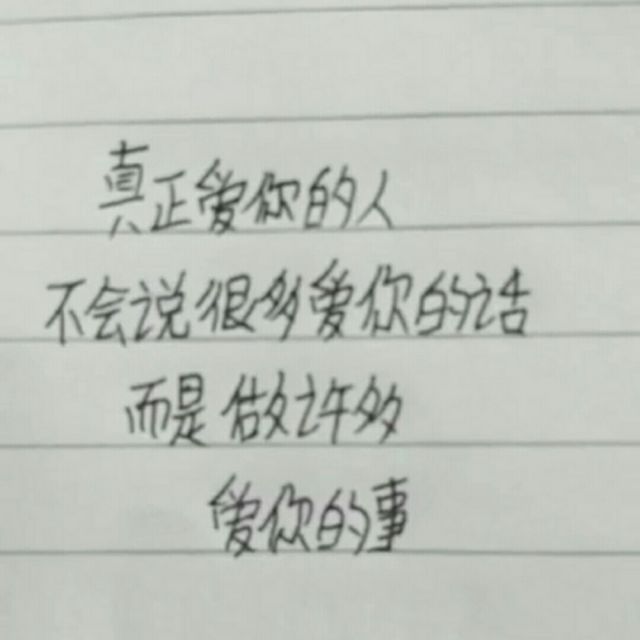 真正爱你的人
不会说很多爱你的话
而是做许多
爱你的事